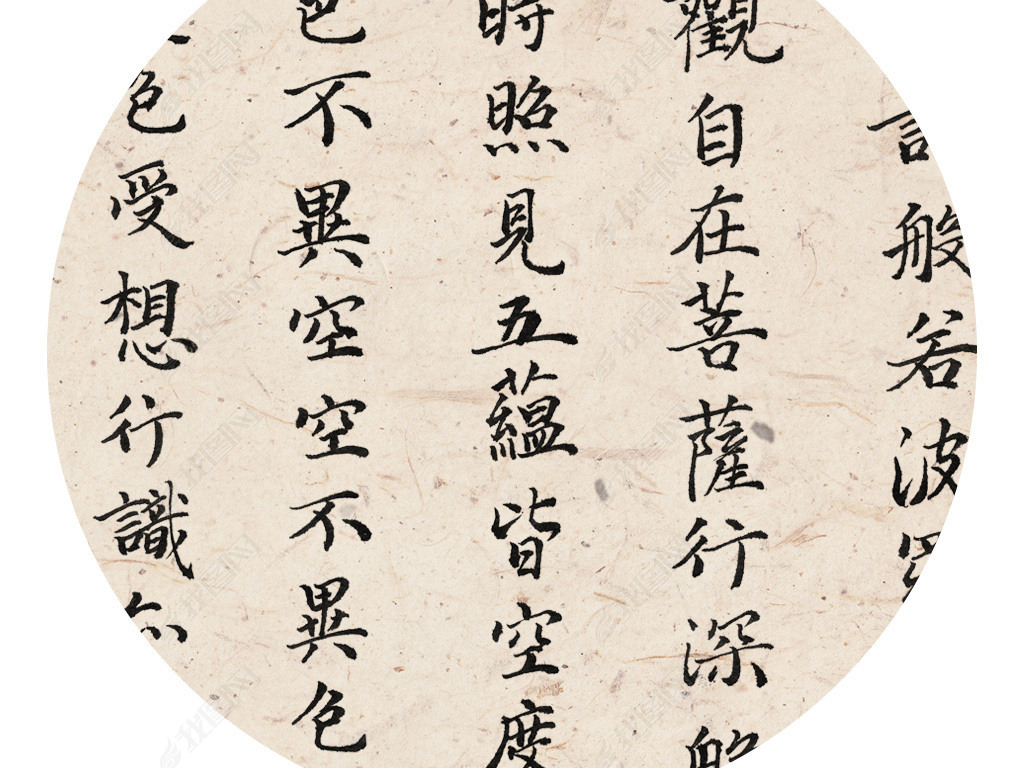 訶般若波羅
觀自在菩薩行深般
時照見五蘊皆空度
色不異空空不異色
色受想行識亦